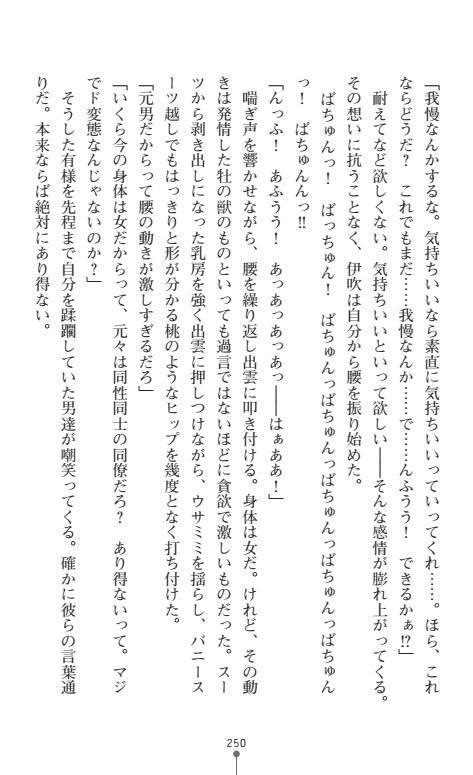 「我慢なんかするな。気持ちいいなら素直に気持ちいいっていってくれ……。ほら、これ
ならどうだ？　これでもまだ……我慢なんか……で……んふうう！　できるかぁ!?」
　耐えてなど欲しくない。気持ちいいといって欲しい――そんな感情が膨れ上がってくる。
その想いに抗うことなく、伊吹は自分から腰を振り始めた。
　ばちゅんっ！　ばっちゅん！　ばちゅんっばちゅんっばちゅんっばちゅんっばちゅん
っ！　ばちゅんんっ!!
「んっふ！　あふうう！　あっあっあっあっ――はぁああ！」
　喘ぎ声を響かせながら、腰を繰り返し出雲に叩き付ける。身体は女だ。けれど、その動
きは発情した牡の獣のものといっても過言ではないほどに貪欲で激しいものだった。スー
ツから剥き出しになった乳房を強く出雲に押しつけながら、ウサミミを揺らし、バニース
ーツ越しでもはっきりと形が分かる桃のようなヒップを幾度となく打ち付けた。
「元男だからって腰の動きが激しすぎるだろ」
「いくら今の身体は女だからって、元々は同性同士の同僚だろ？　あり得ないって。マジ
でド変態なんじゃないのか？」
　そうした有様を先程まで自分を蹂躙していた男達が嘲笑ってくる。確かに彼らの言葉通
りだ。本来ならば絶対にあり得ない。
250